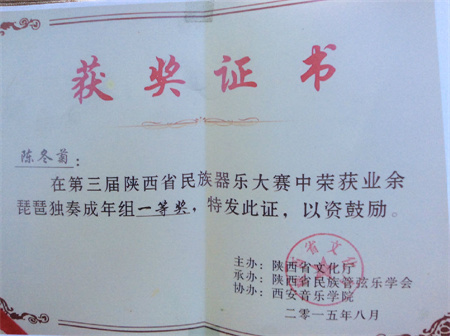 获奖证书
陈冬菊：
在第三届陕西省民族器乐大赛中荣获业余
琵琶独奏成年组一等奖，特发此证，以资鼓励。
主办：陕西省文化厅
承办：陕西省民族管弦乐学会
协办：西安音乐学院
二〇一五年八月